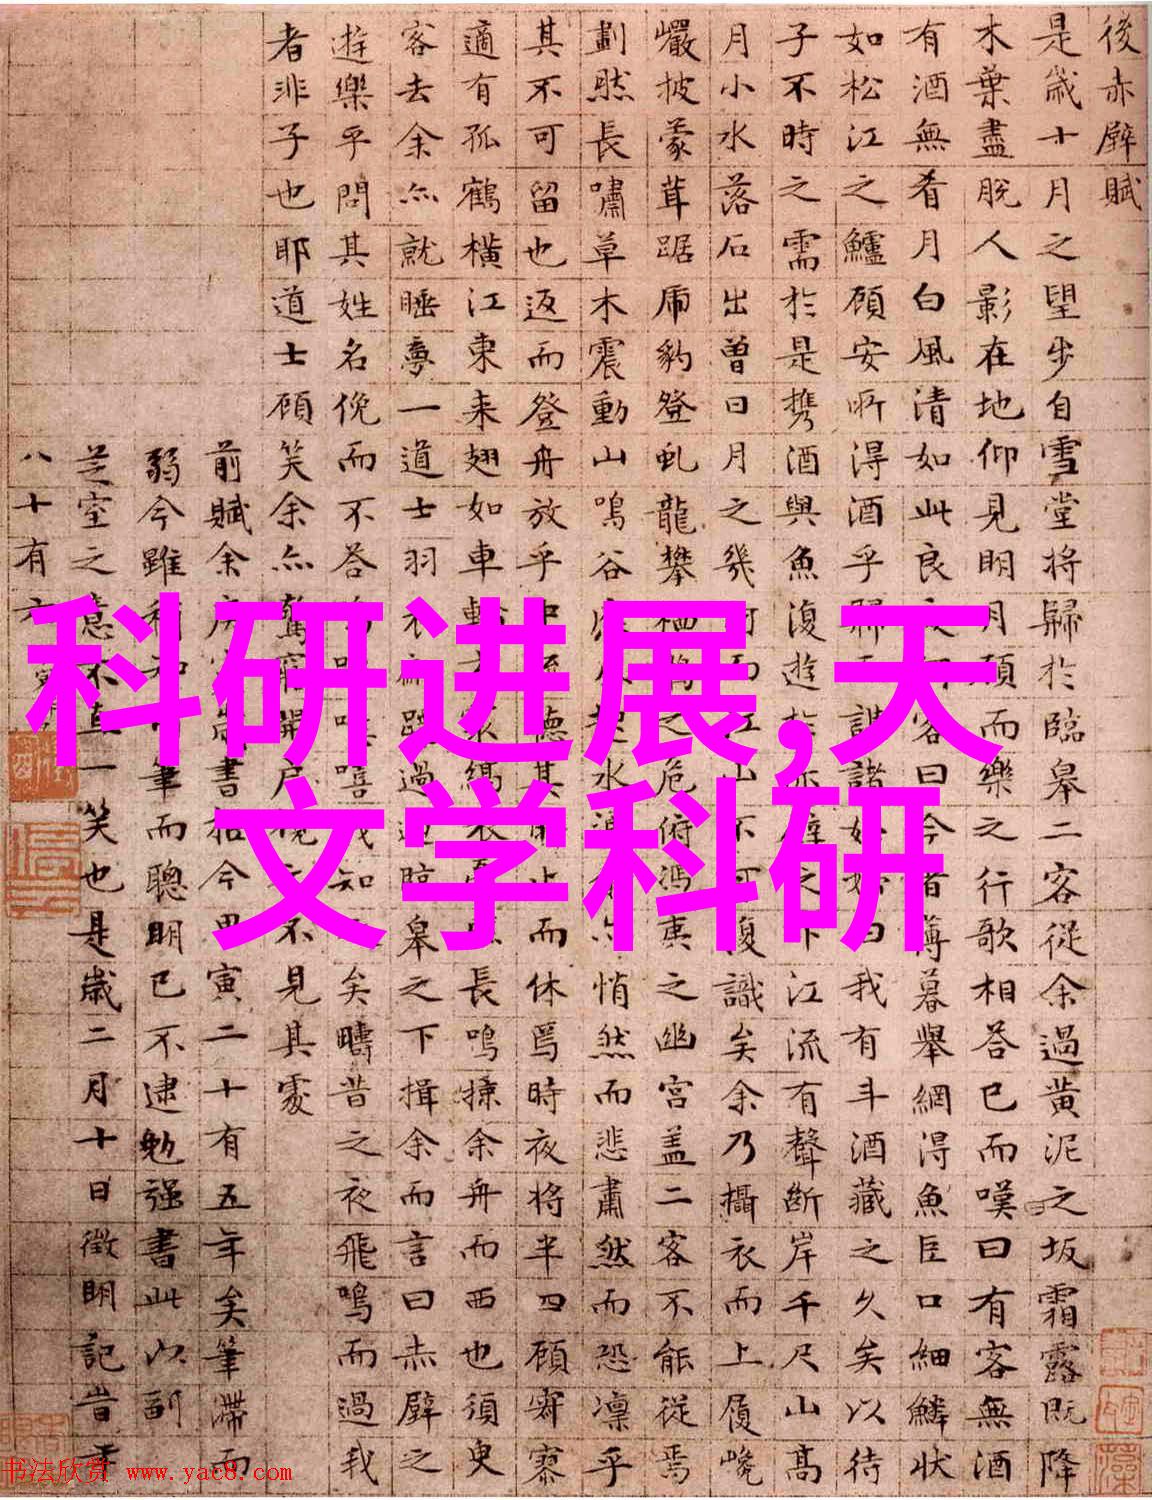 後赤壁賦
是歲十月之望步自雪堂將歸於臨皋二客從余過黃泥之坂霜露既降
木葉盡脫人影在地仰見明月顧而樂之行歌相答已而嘆曰有客無酒
有酒無肴月白風清如此良夜何客曰今者薄暮舉網得魚巨口細鱗狀
如松江之鱸顧安所得酒乎歸而謀諸婦婦曰我有斗酒藏之久矣以待
子不時之需於是攜酒與魚復遊於赤壁之下江流有聲斷岸千尺山高
月小水落石出曾日月之幾何而江山不可復識矣余乃攝衣而上履巉
巖披蒙茸踞虎豹登虬龍攀栖鶻之危俯馮夷之幽宮蓋二客不能從焉
劃然長嘯草木震動山鳴谷應風起水涌余亦悄然而悲肅然而恐凜乎
其不可留也返而登舟放乎中流聽其所止而休焉時夜將半四顧寂寥
適有孤鶴橫江東來翅如車輪玄裳縞衣戛然長鳴掠余舟而西也須臾
客去余亦就睡夢一道士羽衣蹁躚過臨皋之下揖余而言曰赤壁之
遊樂乎問其姓名俛而不答嗚呼噫嘻我知之矣疇昔之夜飛鳴而過我
者非子也耶道士顧笑余亦驚寤開戶視之不見其處
前賦余庚寅歲書抵今甲寅二十有五年矣筆滯而
弱今雖稍知用筆而聰明已不逮勉強書此以副
芝室之意不直一笑也是歲二月十日徵明記時年
八十有六
科研进展,天
文学科研
书法欣赏 www.yac8.com